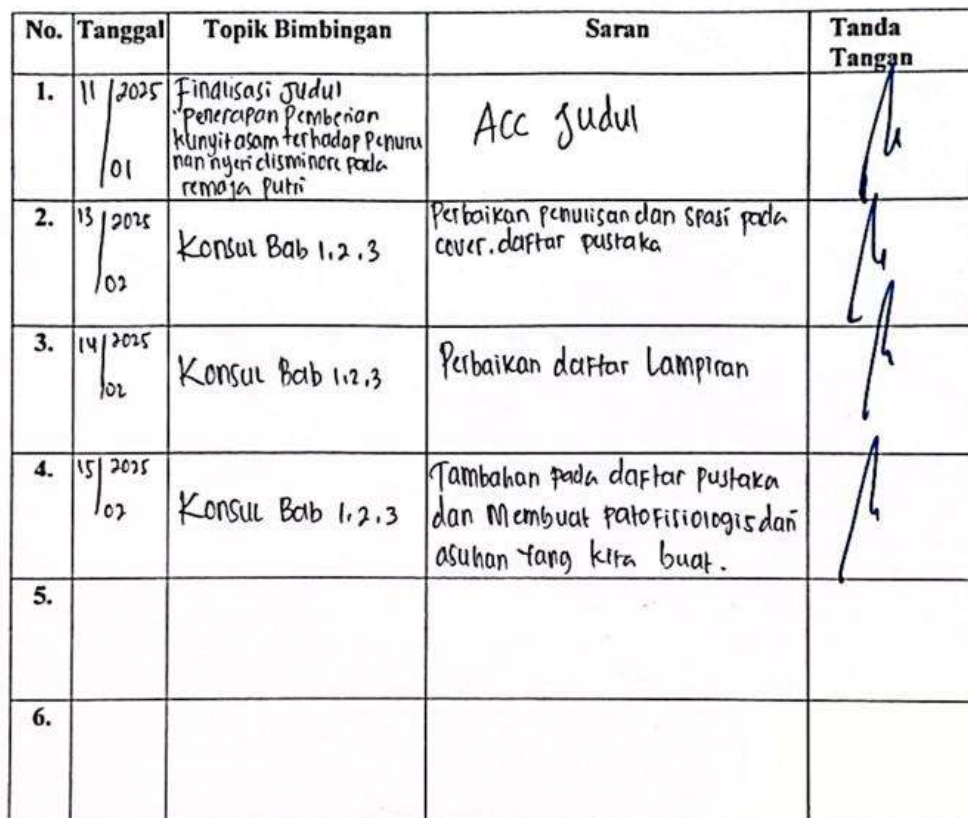 No. Tanggal Topik Bimbingan Saran Tanda Tangan
1. 11/01 2025
Finalisasi Judul
"Penerapan Pemberian
kunyit asam terhadap Penuru
nan nyeri disminore pada
remaja Putri
Acc Judul
2. 13/02 2025
Konsul Bab 1.2.3
Perbaikan penulisan dan spasi pada
cover. daftar pustaka
3. 14/02 2025
Konsul Bab 1.2.3
Perbaikan daftar Lampiran
4. 15/02 2025
Konsul Bab 1.2.3
Tambahan pada daftar pustaka
dan Membuat patofisiologis dan
asuhan yang kita buat.
5.
6.